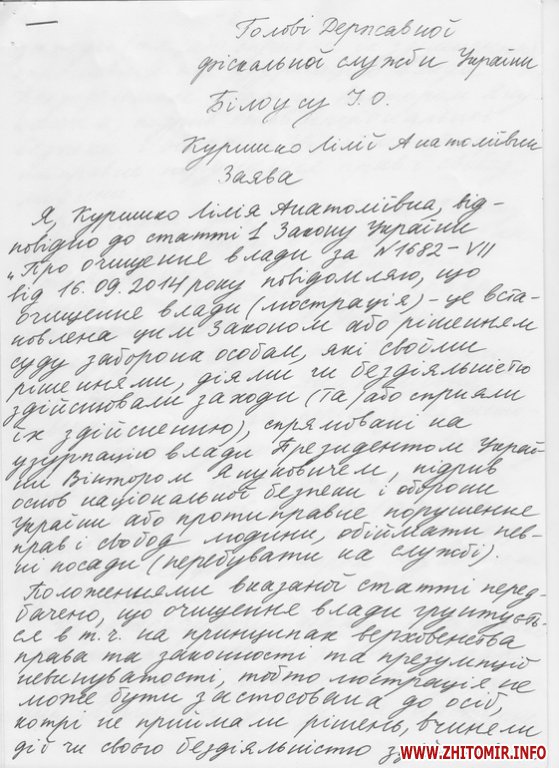 Голові Державної
фіскальної служби України
Білоусу І.О.
Куришко Лілії Анатоліївни
Заява
Я, Куришко Лілія Анатоліївна, від-
повідно до статті 1 Закону України
„Про очищення влади за №1682-VII
від 16.09.2014 року повідомляю, що
очищення влади (люстрація) - це вста-
новлена цим Законом або рішенням
суду заборона особам, які своїми
рішеннями, діями чи бездіяльністю
здійснювали заходи (та/або сприяли
їх здійсненню), спрямовані на
узурпацію влади Президентом Украї-
ни Віктором Януковичем, підрив
основ національної безпеки і оборони
України або протиправне порушення
прав і свобод людини, обіймати пев-
ні посади (перебувати на службі).
Положеннями вказаної статті перед-
бачено, що очищення влади грунтуєть-
ся в т.ч. на принципах верховенства
права та законності та презумпції
невинуватості, тобто люстрація не
може бути застосована до осіб,
котрі не приймали рішень, вчинели
дії чи своєю бездіяльністю
WWW.ZHITOMIR.INFO